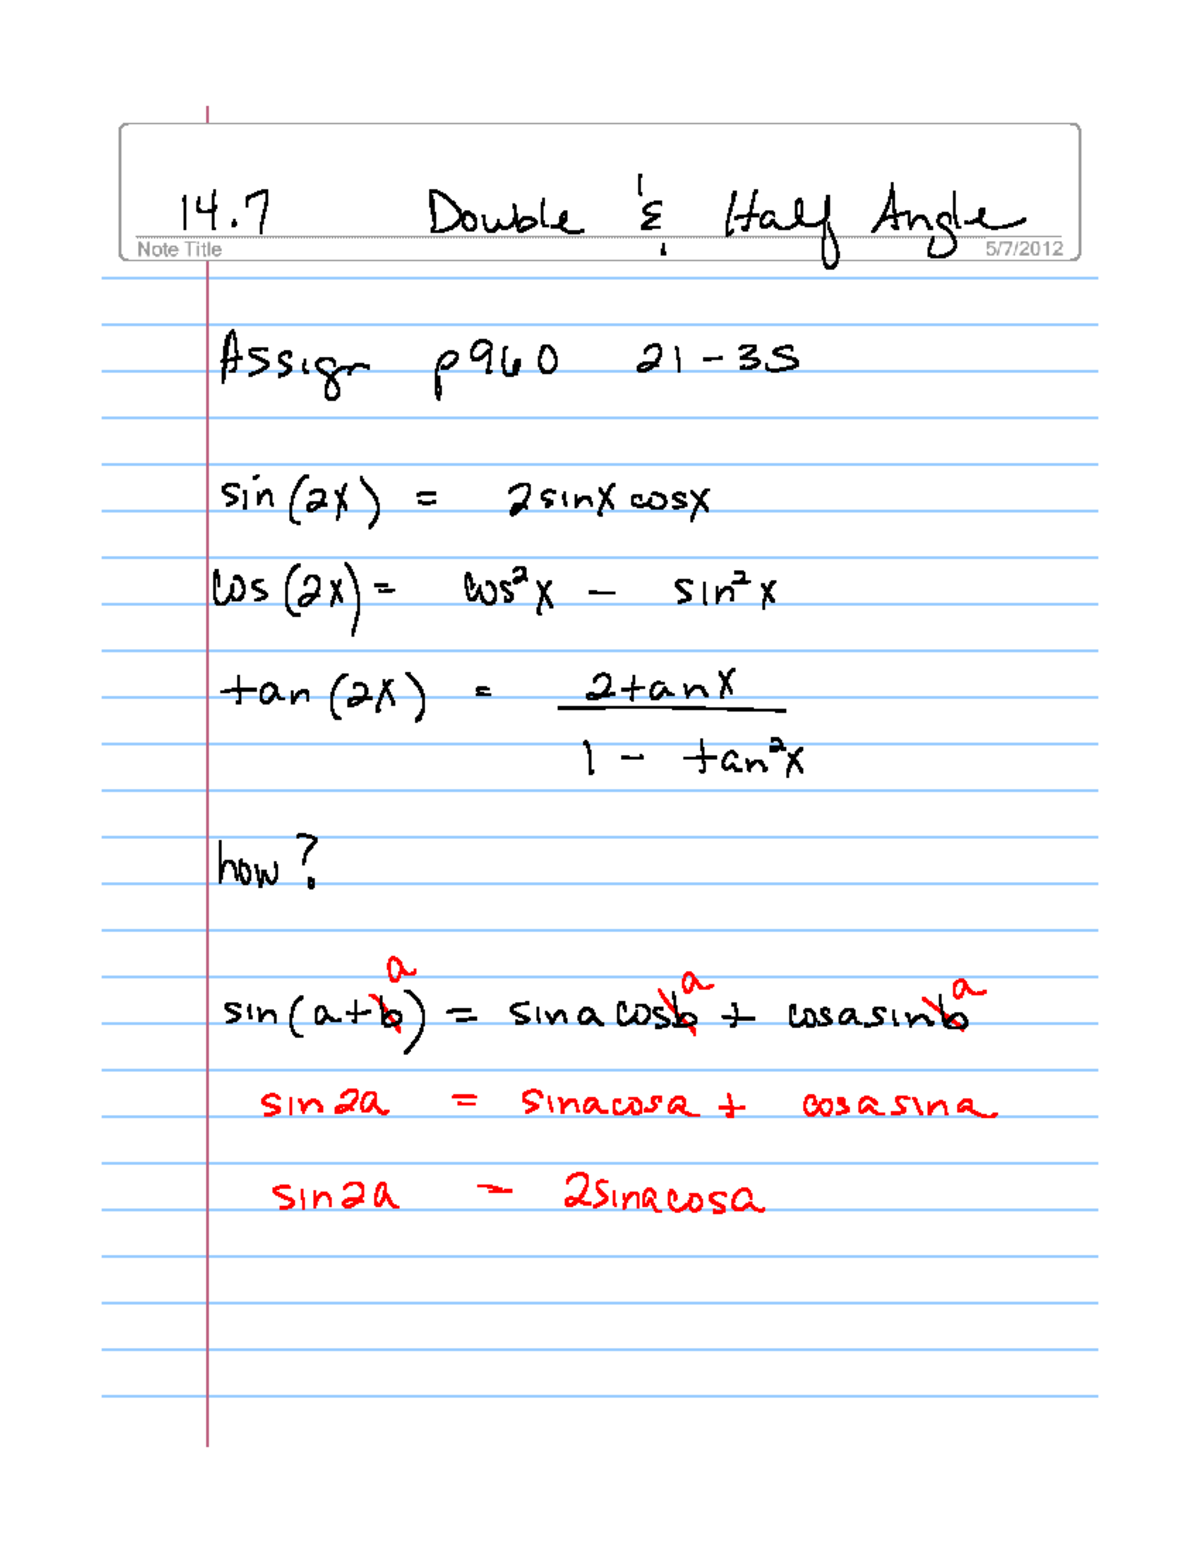 14.7 Double & Half Angle
Note Title 5/7/2012
Assign p960 21-35
sin(2x) = 2sinx cosx
cos(2x) = cos²x - sin²x
tan(2x) = 2tanx
1 - tan²x
how?
a a a
sin(a+b) = sinacosb + cosasinb
sin2a = sinacosa + cosasina
sin2a = 2sinacosa